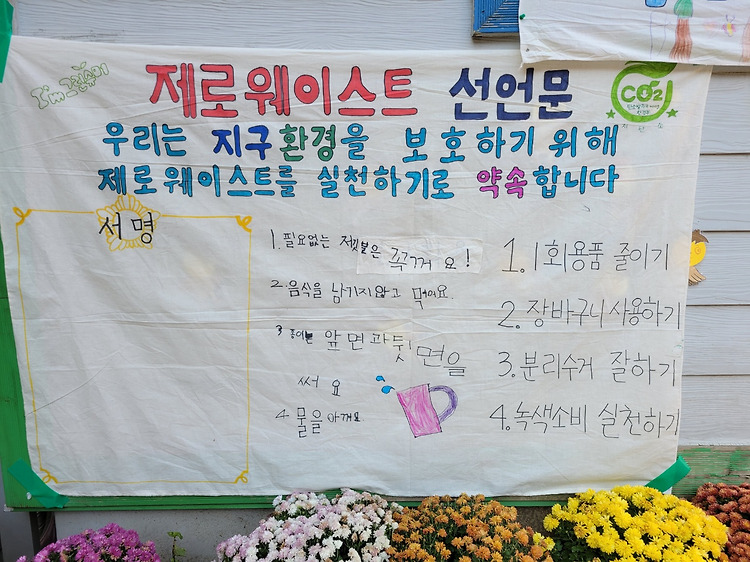 I'm 그린슈머
제로웨이스트 선언문
CO2
우리는 지구환경을 보호하기 위해
제로웨이스트를 실천하기로 약속합니다
서명
1. 필요없는 전깃불은 꼭 꺼요!
2. 음식을 남기지 않고 먹어요.
3 종이는 앞면과 뒷면을
써요
4 물을 아껴요
1. 1회용품 줄이기
2. 장바구니 사용하기
3. 분리수거 잘하기
4. 녹색소비 실천하기